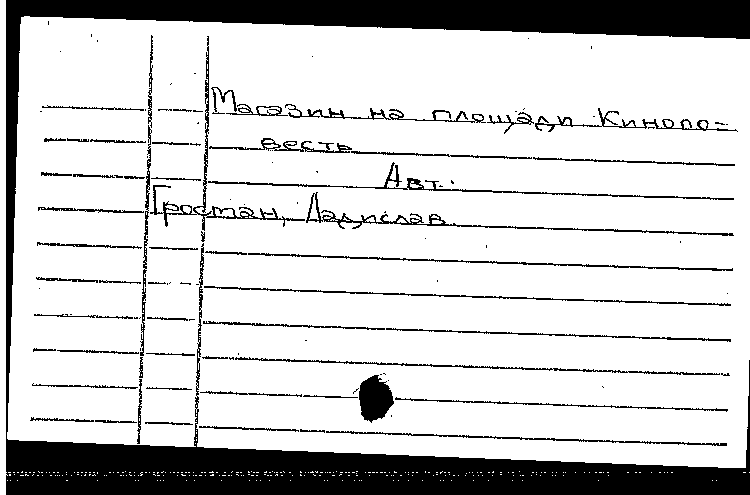 Магазин на площади Кинопо=
весть
Авт.
Гросман, Ладислав